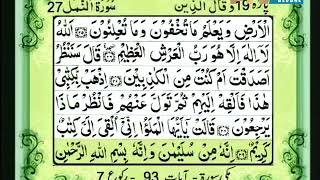 پارہ 19 وقال الذین سورۃ النمل 27
الْأَرْضِ وَيَعْلَمُ مَا تُخْفُونَ وَمَا تُعْلِنُونَ ﴿٢٥﴾ اللَّهُ
لَا إِلَٰهَ إِلَّا هُوَ رَبُّ الْعَرْشِ الْعَظِيمِ ﴿٢٦﴾ قَالَ سَنَنظُرُ
أَصَدَقْتَ أَمْ كُنتَ مِنَ الْكَاذِبِينَ ﴿٢٧﴾ اذْهَب بِّكِتَابِي
هَٰذَا فَأَلْقِهْ إِلَيْهِمْ ثُمَّ تَوَلَّ عَنْهُمْ فَانظُرْ مَاذَا
يَرْجِعُونَ ﴿٢٨﴾ قَالَتْ يَا أَيُّهَا الْمَلَأُ إِنِّي أُلْقِيَ إِلَيَّ كِتَابٌ
كَرِيمٌ ﴿٢٩﴾ إِنَّهُ مِن سُلَيْمَانَ وَإِنَّهُ بِسْمِ اللَّهِ الرَّحْمَٰنِ
مکی سورۃ - آیات 93 - رکوع 7